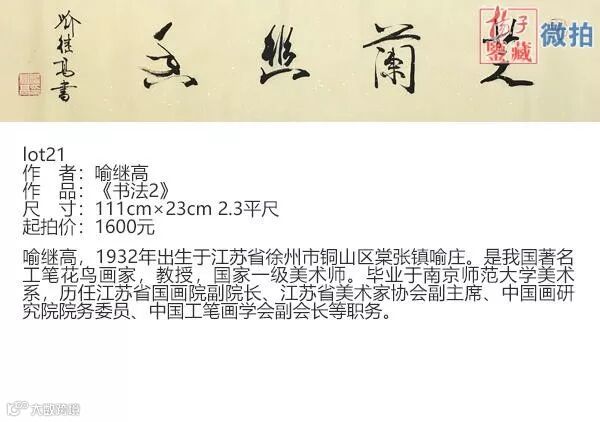 蘭
喻继高書
扬子
鉴藏
微拍
lot21
作 者：喻继高
作 品：《书法2》
尺 寸：111cm×23cm 2.3平尺
起拍价：1600元
喻继高，1932年出生于江苏省徐州市铜山区棠张镇喻庄。是我国著名
工笔花鸟画家，教授，国家一级美术师。毕业于南京师范大学美术
系，历任江苏省国画院副院长、江苏省美术家协会副主席、中国画研
究院院务委员、中国工笔画学会副会长等职务。
大数跨境